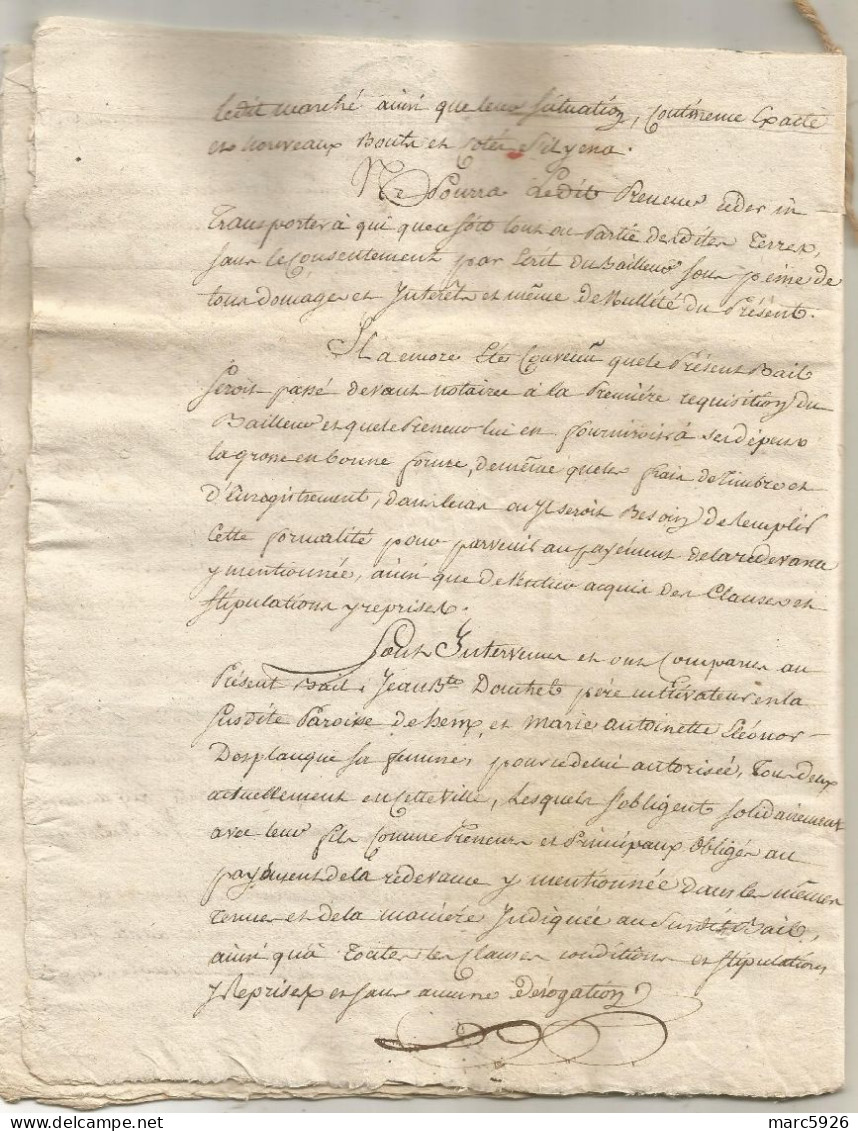 ledit marché ainsi que leur situation, Contenence Exacte
et nouveaux Bouts et Cotés s'il y en a.
Ne Pourra Ledit Preneur céder ni
Transporter à qui que ce soit tout ou Partie desdites Terres,
sans le Consentement par Ecrit du Bailleur sous peine de
tous domages et Interêts et même de Nullité du Présent.
Il a encore Eté Convenu que le Présent Bail
seroit passé devant notaire à la Premiére requisition du
Bailleur et que le Preneur lui en fourniroit à ses dépens
la grosse en bonne forme, de même que les frais de Timbre et
d'Enregistrement, dans le cas ou Il seroit Besoin de Remplir
Cette formalité pour parvenir au payément de la redevance
y mentionnée, ainsi que de Rendre acquis des Clauses et
stipulations y reprises.
Sont Intervenus et ont Comparus au
Présent Bail, Jean Bte Douchet pére cultivateur en la
susdite Paroisse de hem, et marie antoinette Eléonor
Desplanque sa femme, pour ce de lui autorisée, Tous deux
actuellement en Cette ville, Lesquels s'obligent solidairement
avec leur fils Comme Preneurs et Principaux Obligés au
payément de la redevance y mentionnée dans les mêmes
termes et de la maniére Indiquée au susdit Bail,
ainsi qu'à toutes les Clauses conditions et stipulations
y Reprises et sans aucune Dérogation
marc5926